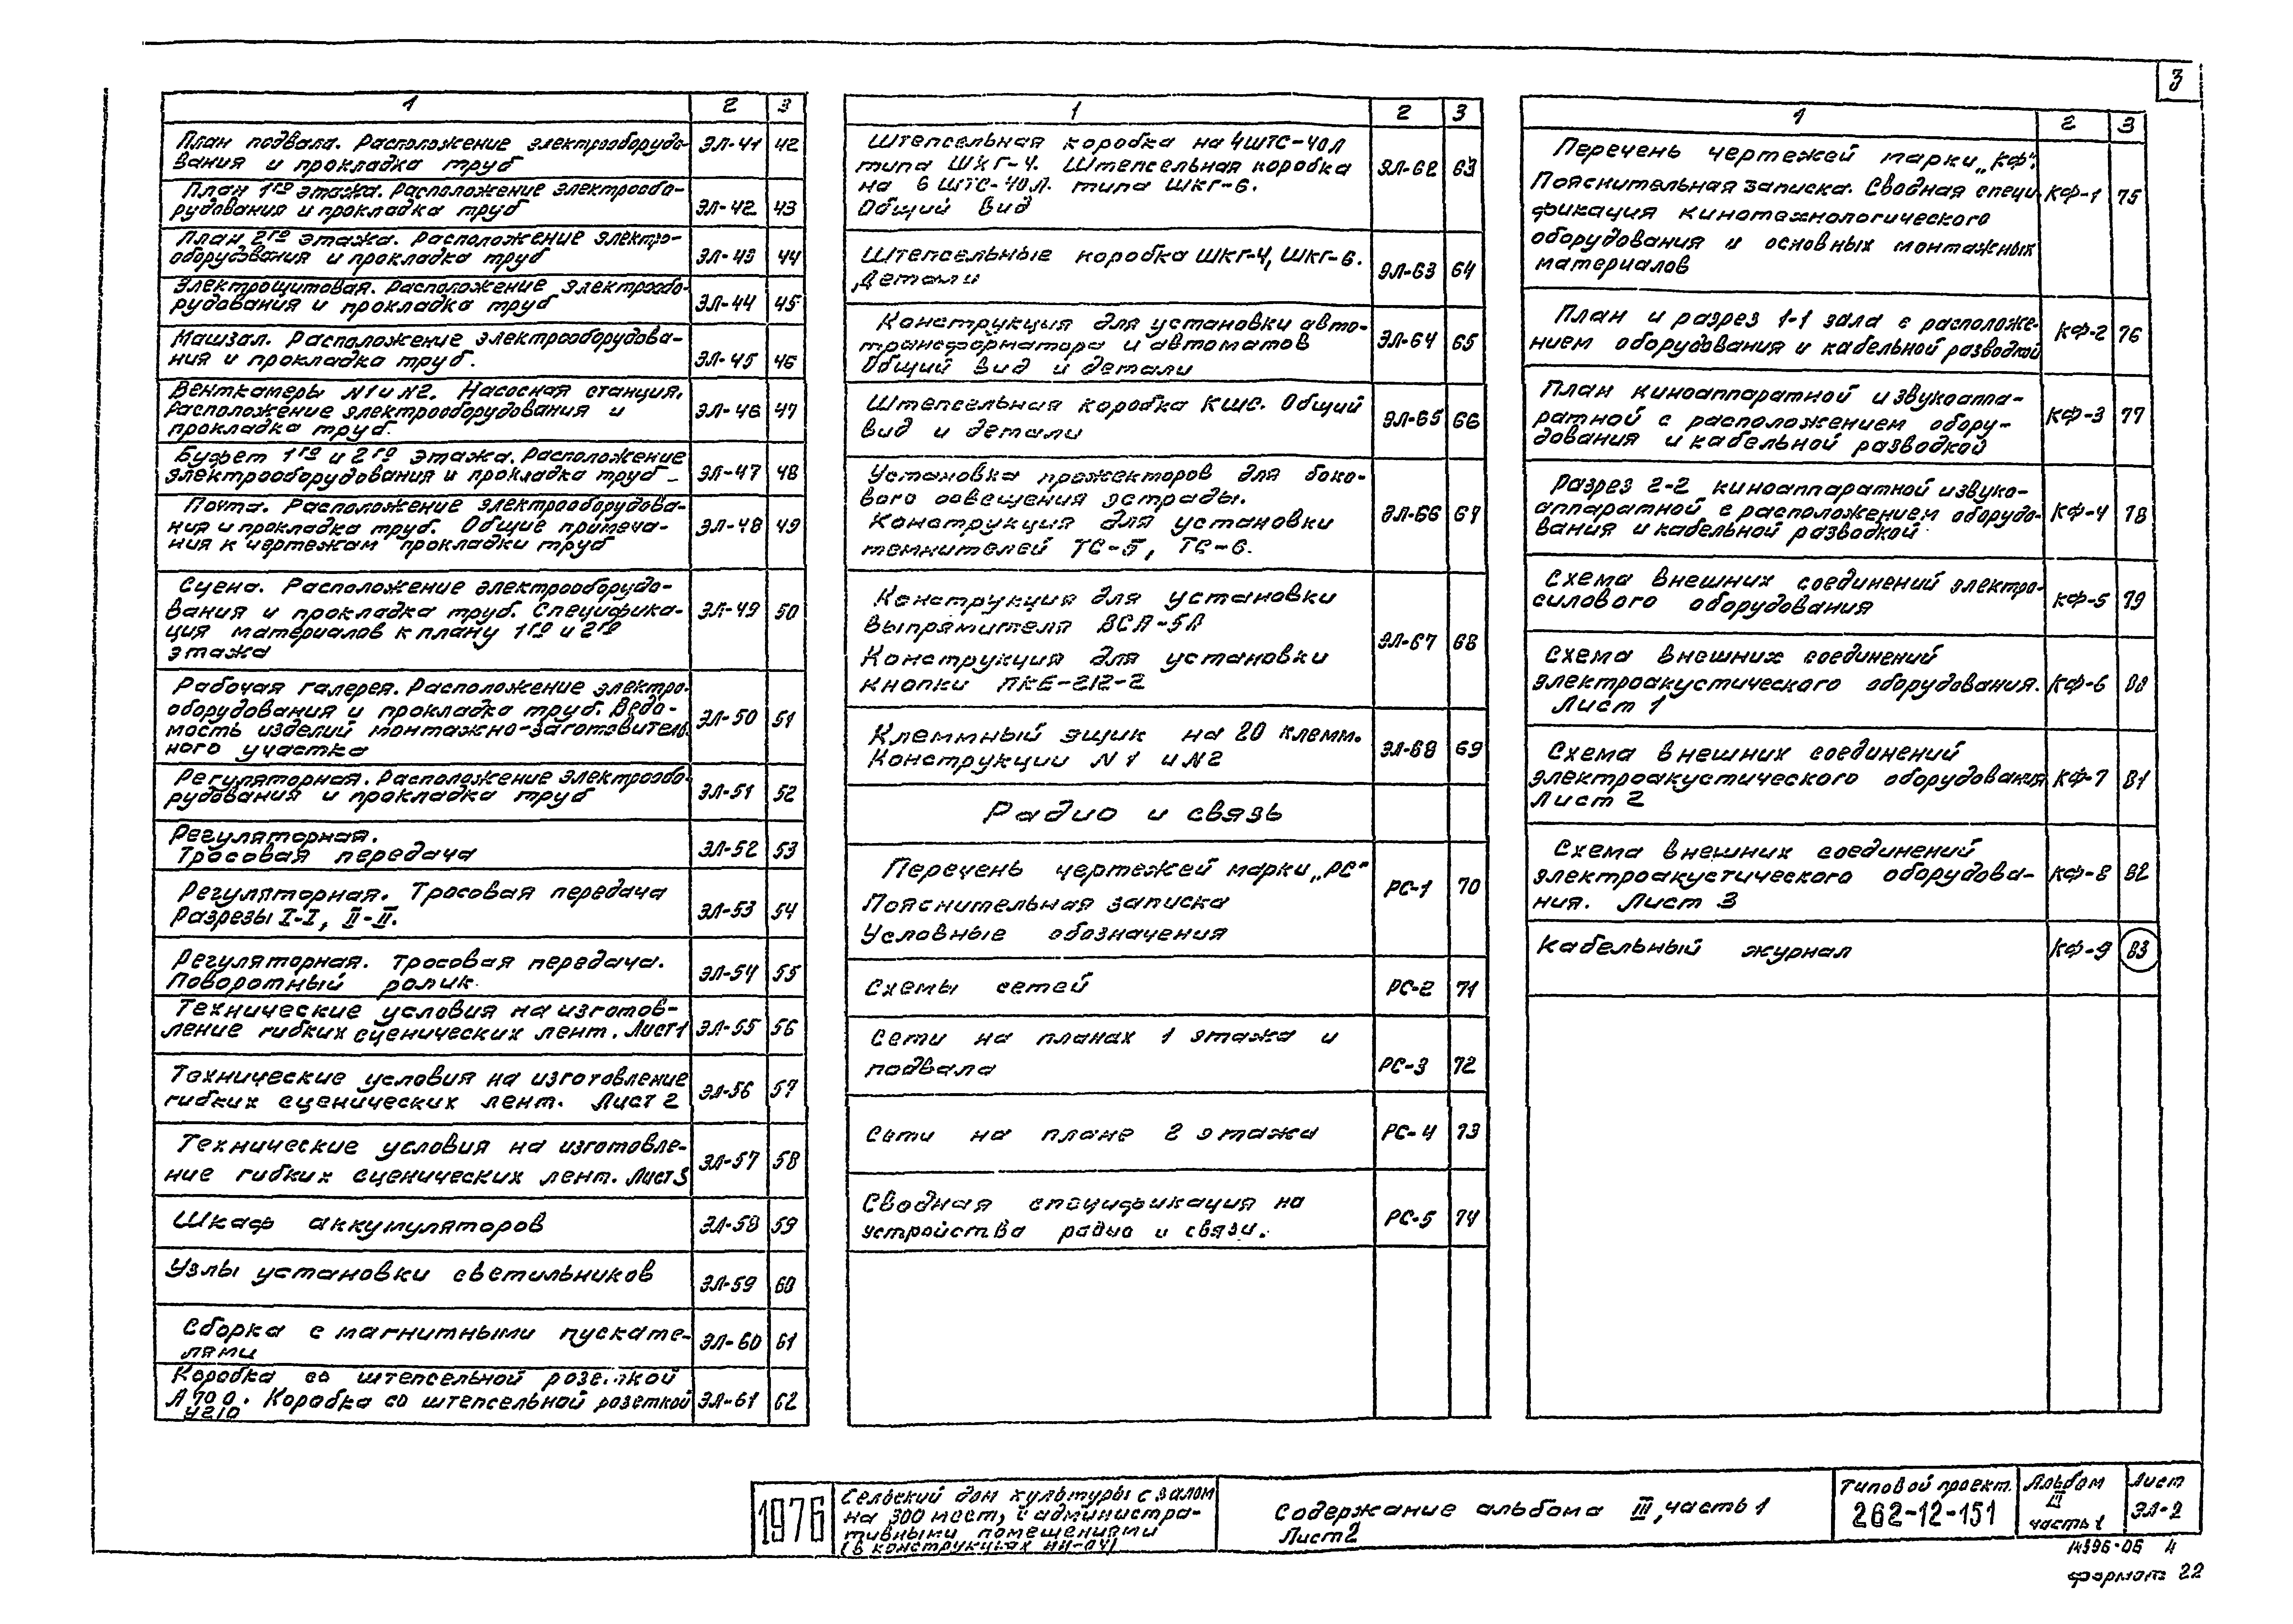 3
1 2 3
План подвала. Расположение электрооборудо-
вания и прокладка труб ЭЛ-41 42
План 1го этажа. Расположение электрообо-
рудования и прокладка труб ЭЛ-42 43
План 2го этажа. Расположение электро-
оборудования и прокладка труб ЭЛ-43 44
Электрощитовая. Расположение электрообо-
рудования и прокладка труб ЭЛ-44 45
Машзал. Расположение электрооборудова-
ния и прокладка труб. ЭЛ-45 46
Венткамеры N1 и N2. Насосная станция.
Расположение электрооборудования и ЭЛ-46 47
прокладка труб.
Буфет 1го и 2го этажа. Расположение
электрооборудования и прокладка труб ЭЛ-47 48
Почта. Расположение электрооборудова-
ния и прокладка труб. Общие примеча- ЭЛ-48 49
ния к чертежам прокладки труб
Сцена. Расположение электрооборудо-
вания и прокладка труб. Специфика- ЭЛ-49 50
ция материалов к плану 1го и 2го
этажа
Рабочая галерея. Расположение электро-
оборудования и прокладка труб. Ведо- ЭЛ-50 51
мость изделий монтажно-заготовитель-
ного участка
Регуляторная. Расположение электрообо-
рудования и прокладка труб ЭЛ-51 52
Регуляторная.
Тросовая передача ЭЛ-52 53
Регуляторная. Тросовая передача
Разрезы I-I, II-II. ЭЛ-53 54
Регуляторная. Тросовая передача.
Поворотный ролик. ЭЛ-54 55
Технические условия на изготов-
ление гибких сценических лент. Лист 1 ЭЛ-55 56
Технические условия на изготовление
гибких сценических лент. Лист 2 ЭЛ-56 57
Технические условия на изготовле-
ние гибких сценических лент. Лист 3 ЭЛ-57 58
Шкаф аккумуляторов ЭЛ-58 59
Узлы установки светильников ЭЛ-59 60
Сборка с магнитными пускате-
лями ЭЛ-60 61
Коробка со штепсельной розеткой
А 700. Коробка со штепсельной розеткой ЭЛ-61 62
У210
1 2 3
Штепсельная коробка на 4ШТС-40Л
типа ШКГ-4. Штепсельная коробка ЭЛ-62 63
на 6 ШТС-40Л. типа ШКГ-6.
Общий вид
Штепсельные коробка ШКГ-4, ШКГ-6.
Детали ЭЛ-63 64
Конструкция для установки авто-
трансформатора и автоматов ЭЛ-64 65
Общий вид и детали
Штепсельная коробка КШС. Общий
вид и детали ЭЛ-65 66
Установка прожекторов для боко-
вого освещения эстрады.
Конструкция для установки ЭЛ-66 67
темнителей ТС-5, ТС-6.
Конструкция для установки
выпрямителя ВСА-5А ЭЛ-67 68
Конструкция для установки
кнопки ПКЕ-212-2
Клеммный ящик на 20 клемм.
Конструкции N 1 и N2 ЭЛ-68 69
Радио и связь
Перечень чертежей марки „РС"
Пояснительная записка РС-1 70
Условные обозначения
Схемы сетей РС-2 71
Сети на планах 1 этажа и
подвала РС-3 72
Сети на плане 2 этажа РС-4 73
Сводная спецификация на
устройства радио и связи. РС-5 74
1 2 3
Перечень чертежей марки „КФ".
Пояснительная записка. Сводная специ- КФ-1 75
фикация кинотехнологического
оборудования и основных монтажных
материалов
План и разрез 1-1 зала с расположе-
нием оборудования и кабельной разводкой КФ-2 76
План киноаппаратной и звукоаппа-
ратной с расположением обору- КФ-3 77
дования и кабельной разводкой
Разрез 2-2 киноаппаратной и звуко-
аппаратной с расположением оборудо- КФ-4 78
вания и кабельной разводкой
Схема внешних соединений электро-
силового оборудования КФ-5 79
Схема внешних соединений
электроакустического оборудования. КФ-6 80
Лист 1
Схема внешних соединений
электроакустического оборудования КФ-7 81
Лист 2
Схема внешних соединений
электроакустического оборудова- КФ-8 82
ния. Лист 3
Кабельный журнал КФ-9 83
1976
Сельский дом культуры с залом
на 300 мест, с администра-
тивными помещениями
(в конструкциях ИИ-04)
Содержание альбома III, часть 1
Лист 2
Типовой проект.
262-12-151
Альбом
III
часть 1
Лист
ЭЛ-2
14396-06 4
формат 22